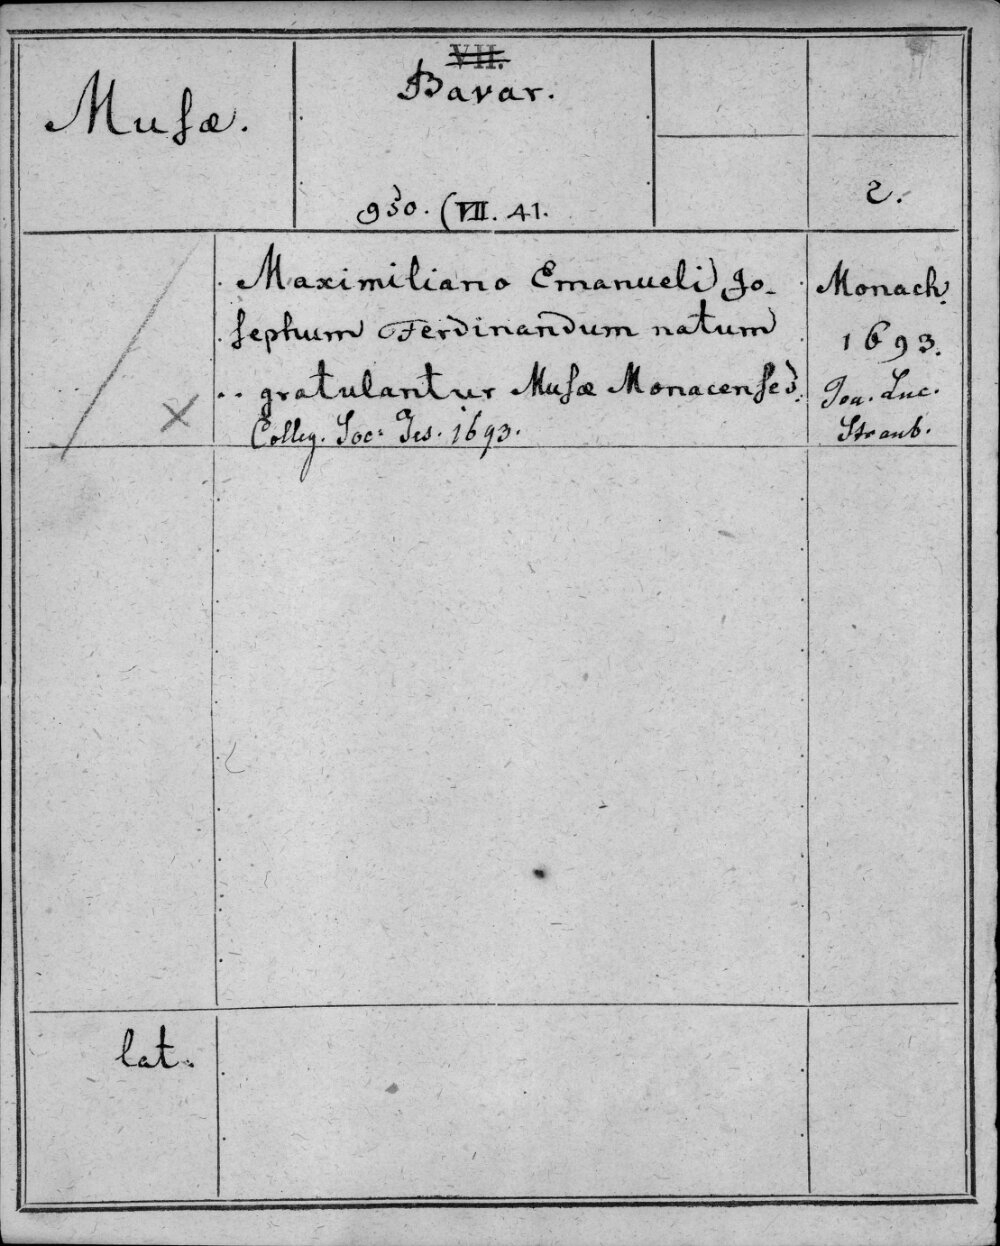 Musæ.
VII.
Bavar.
950. (VII. 41.
2.
Maximiliano Emanueli Jo-
sephum Ferdinandum natum
gratulantur Musæ Monacenses.
Colleg. Soc: Jes. 1693.
Monach.
1693.
Joa. Luc.
Straub.
lat.